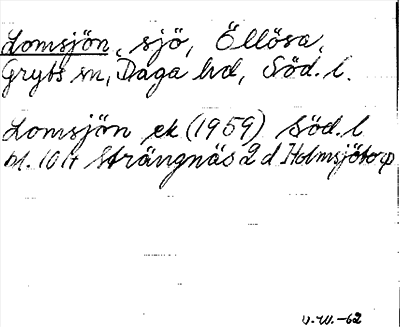 Lomsjön, sjö, Ellösa,
Gryts sn, Daga hd, Söd. l.
Lomsjön ek (1959) Söd. l
bl. 10 H Strängnäs 2 d Holmsjötorp
V.W.-62